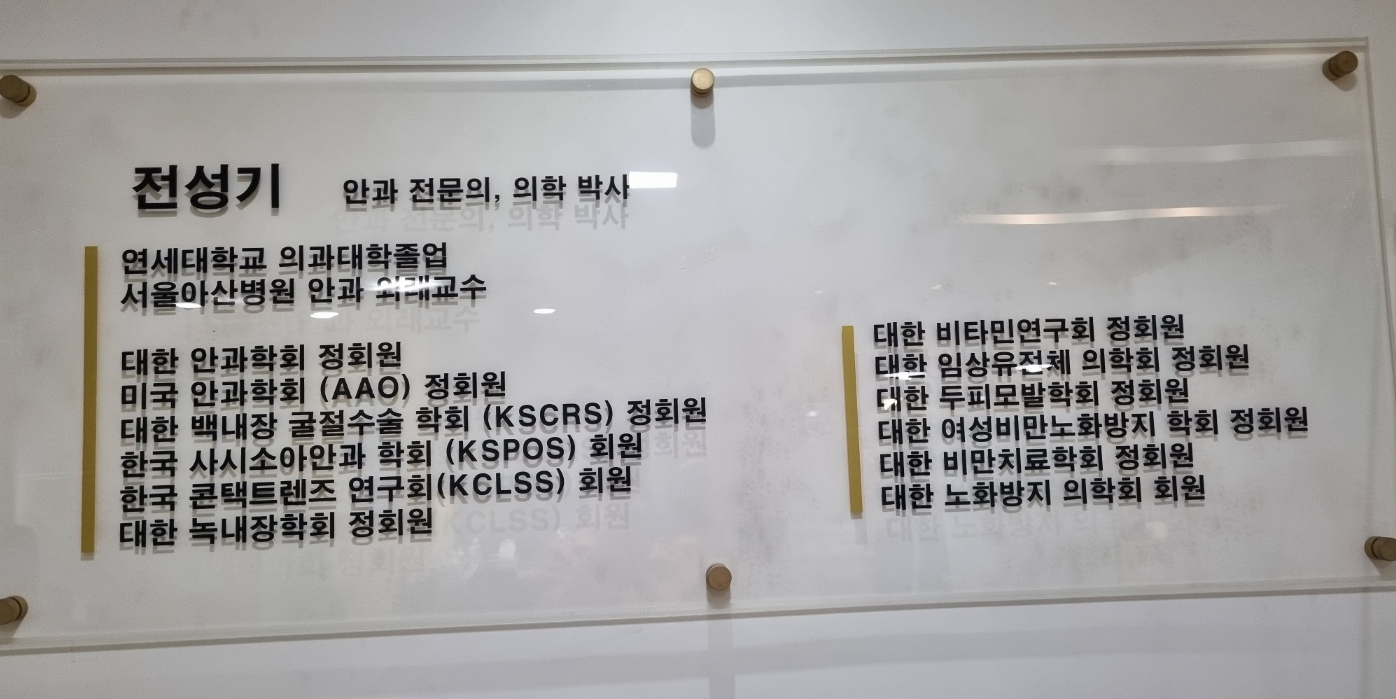 전성기 안과 전문의, 의학 박사
연세대학교 의과대학졸업
서울아산병원 안과 외래교수
대한 안과학회 정회원
미국 안과학회 (AAO) 정회원
대한 백내장 굴절수술 학회 (KSCRS) 정회원
한국 사시소아안과 학회 (KSPOS) 회원
한국 콘택트렌즈 연구회(KCLSS) 회원
대한 녹내장학회 정회원
대한 비타민연구회 정회원
대한 임상유전체 의학회 정회원
대한 두피모발학회 정회원
대한 여성비만노화방지 학회 정회원
대한 비만치료학회 정회원
대한 노화방지 의학회 회원